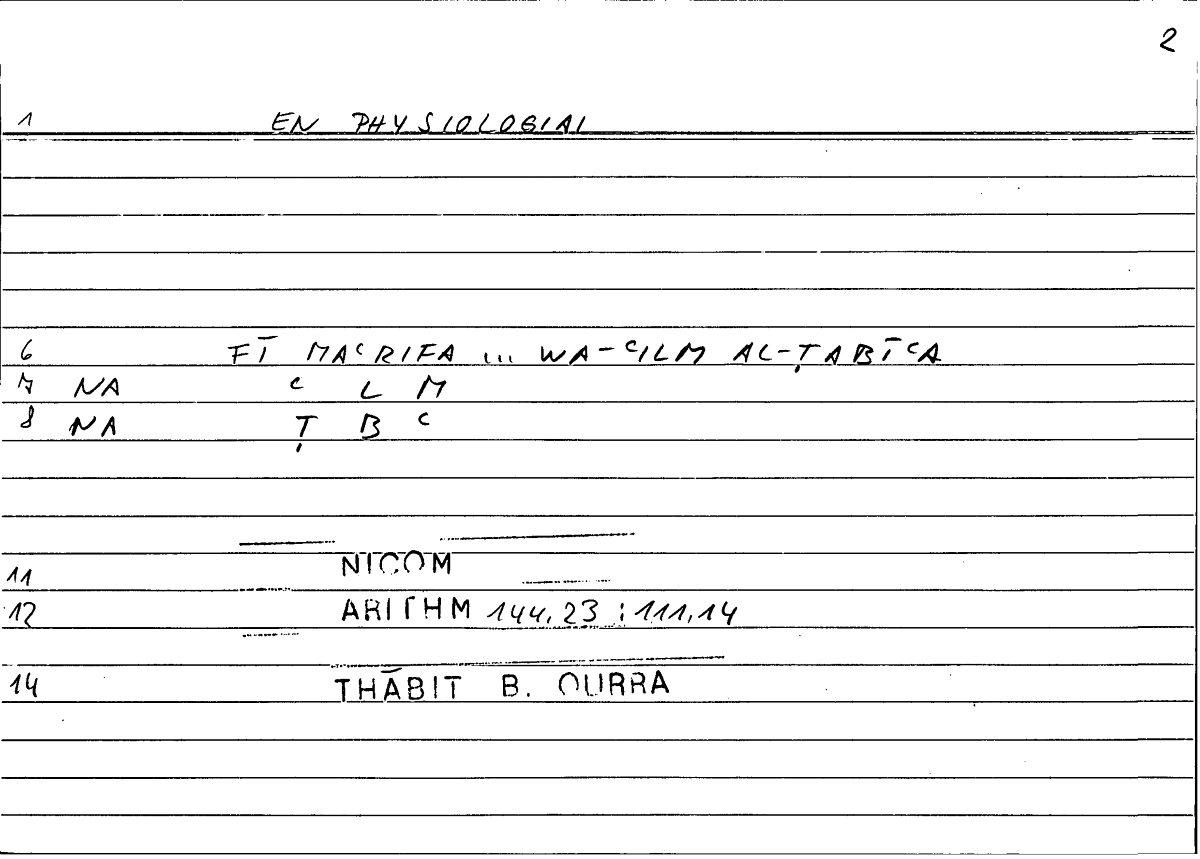 2
1 EN PHYSIOLOGIAI
6 FĪ MAᶜRIFA ... WA-ᶜILM AL-ṬABĪᶜA
7 NA ᶜ L M
8 NA Ṭ B ᶜ
11 NICOM
12 ARITHM 144,23 ; 111,14
14 THĀBIT B. QURRA